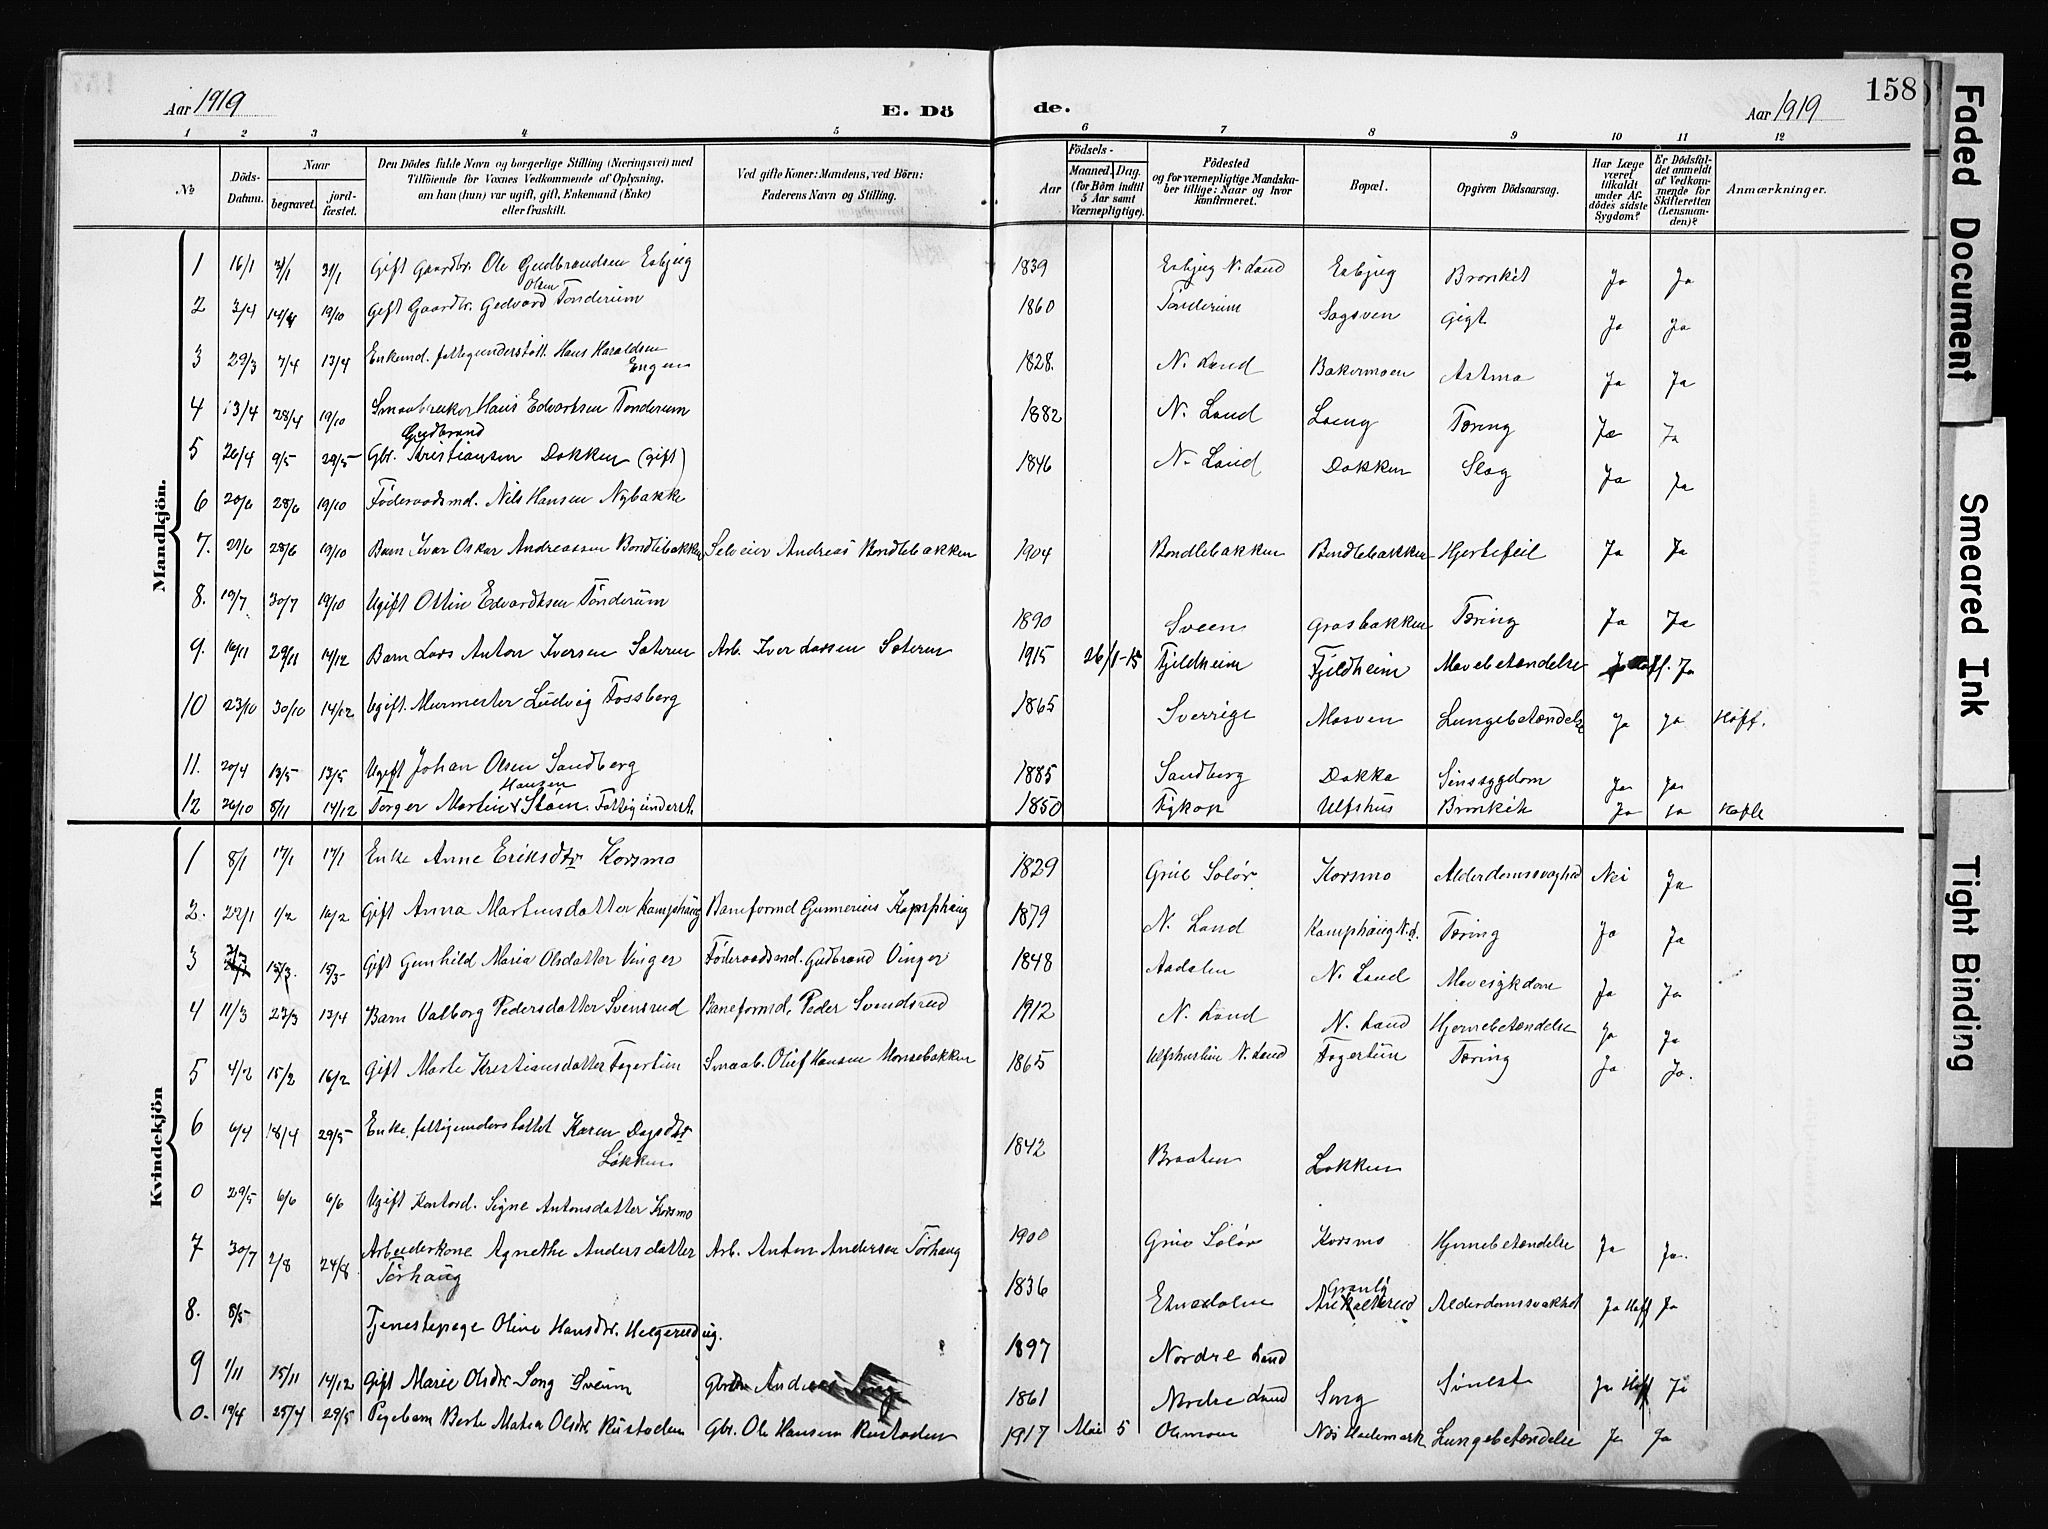 Aar 1919
E. Dö
de.
Aar 1919
158
1 2 3 4 5 6 7 8 9 10 11 12
№
Döds-Datum.
Naar
begravet.
jord-fæstet.
Den Dödes fulde Navn og borgerlige Stilling (Næringsvei) med
Tilföiende for Voxnes Vedkommende af Oplysning,
om han (hun) var ugift, gift, Enkemand (Enke)
eller fraskilt.
Ved gifte Koner: Mandens, ved Börn:
Faderens Navn og Stilling.
Födsels-
Aar
Maaned. Dag.
(for Börn indtil
5 Aar samt
Værnepligtige).
Födested
og for værnepligtige Mandska-
ber tillige: Naar og hvor
konfirmeret.
Bopæl.
Opgiven Dödsaarsag.
Har Læge
været
tilkaldt
under Af-
dödes sidste
Sygdom?
Er Dödsfal-
det anmeldt
af Vedkom-
mende for
Skifteretten
(Lensman-
den)?
Anmærkninger.
Mandkjön.
1 16/1 31/1 31/1 Gift Gaardbr. Ole Gudbrandsen Esbjug 1839 Esbjug N. Land Esbjug Bronkit Ja Ja
Olsen
2 3/4 14/4 19/10 Gift Gaardbr. Gedvard Tonderum 1860 Tonderum Sagsven Gigt Ja Ja
3 29/3 7/4 13/4 Enkemd. fattigunderstött. Hans Haraldsen 1828. N. Land Bakermoen Astma Ja Ja
Engen
4 13/4 28/4 19/10 Smaabruker Hans Edvartsen Tonderum 1882 N. Land Loeng Tæring Ja Ja
Gudbrand
5 26/4 9/5 29/5 Gbr. Kristiansen Dokken (gift) 1846 N. Land Dokken Slag Ja Ja
6 20/6 28/6 19/10 Föderaadsmd. Nils Hansen Nybakke
7. 21/6 28/6 19/10 Barn Ivar Oskar Andreassen Bondlibakken Selveier Andreas Bondlebakken 1904 Bondlebakken Bondlebakken Hjertefeil Ja Ja
8. 19/7 30/7 19/10 Ugift Ottin Edvardtsen Tönderum 1890 Sveen Grasbakken Tæring Ja Ja
9. 16/11 29/11 14/12 Barn Lars Anton Iversen Sateren Arb. Iver Larsen Sateren 1915 26/1-15 Fjeldheim Fjeldheim Mavebetændelse Ja
10 23/10 30/10 14/12 Ugift Murmester Ludvig Fossberg 1865 Sverrige Mosven Lungebetændelse Ja Ja Hoff.
11. 20/4 13/5 13/5 Ugift Johan Olsen Sandberg 1885 Sandberg Dokka Sinssygdom Ja Ja
Hansen
12 26/10 5/11 14/12 Torger Martin Stöen. Fattigunderst. 1850 Fykop Ulfshus Bronkit Ja Ja
Kvindekjön
1 8/1 17/1 17/1 Enke Anne Eriksdtr. Korsmo 1829 Grue Solör Korsmo Alderdomssvaghed Nei Ja
2. 22/1 1/2 16/2 Gift Anna Martinsdatter Kamphaug Baneformd Gunnerius Kamphaug 1879 N. Land Kamphaug N. L. Tæring Ja Ja
3 15/3. 15/3 Gift Gunhild Maria Olsdatter Vinger Föderaadsmd. Gudbrand Vinger 1848 Aadalen N. Land Mavesykdom Ja Ja
4 11/3 23/3 13/4 Barn Valborg Pedersdatter Svensrud Baneformd. Peder Svendsrud 1912 N. Land N. Land Hjernebetændelse Ja Ja
5 4/2 15/2 16/2 Gift Marte Kristiansdatter Fagertun Smaab. Oluf Hansen Monsebakken 1865 Ulfshustuen N. Land Fagertun Tæring Ja Ja.
6 6/4 18/4 29/5 Enke fattigunderstöttet Karen Dagsdtr 1842 Braaten Løkken
Løkken
0 29/5 6/6 6/6 Ugift Kontord. Signe Antonsdatter Korsmo 1900 Grue Solör Korsmo Hjernebetændelse Ja Ja.
7 30/7 2/8 24/8 Arbeiderkone Agnethe Andersdatter Arb. Anton Andersen Torhaug 1836 Etnedalen Alderdomssvakhet Ja Hoff Ja
Torhaug
Granly
8. 8/5 Tjenestepige Oline Hansdtr. Helgerud ug. 1897 Nordre Land
9 1/11 15/11 14/12 Gift Marie Olsdtr Song Sveum 1861 Nordre Land Song Ja Hoff Ja
0. 19/4 25/4 29/5 Pigebarn Berte Matea Olsdtr Rustaden Gbr. Ole Hansen Rustaden 1917 Mai 5 Nes Hedemark Lungebetændelse Ja Ja
Faded Document
Smeared Ink
Tight Binding